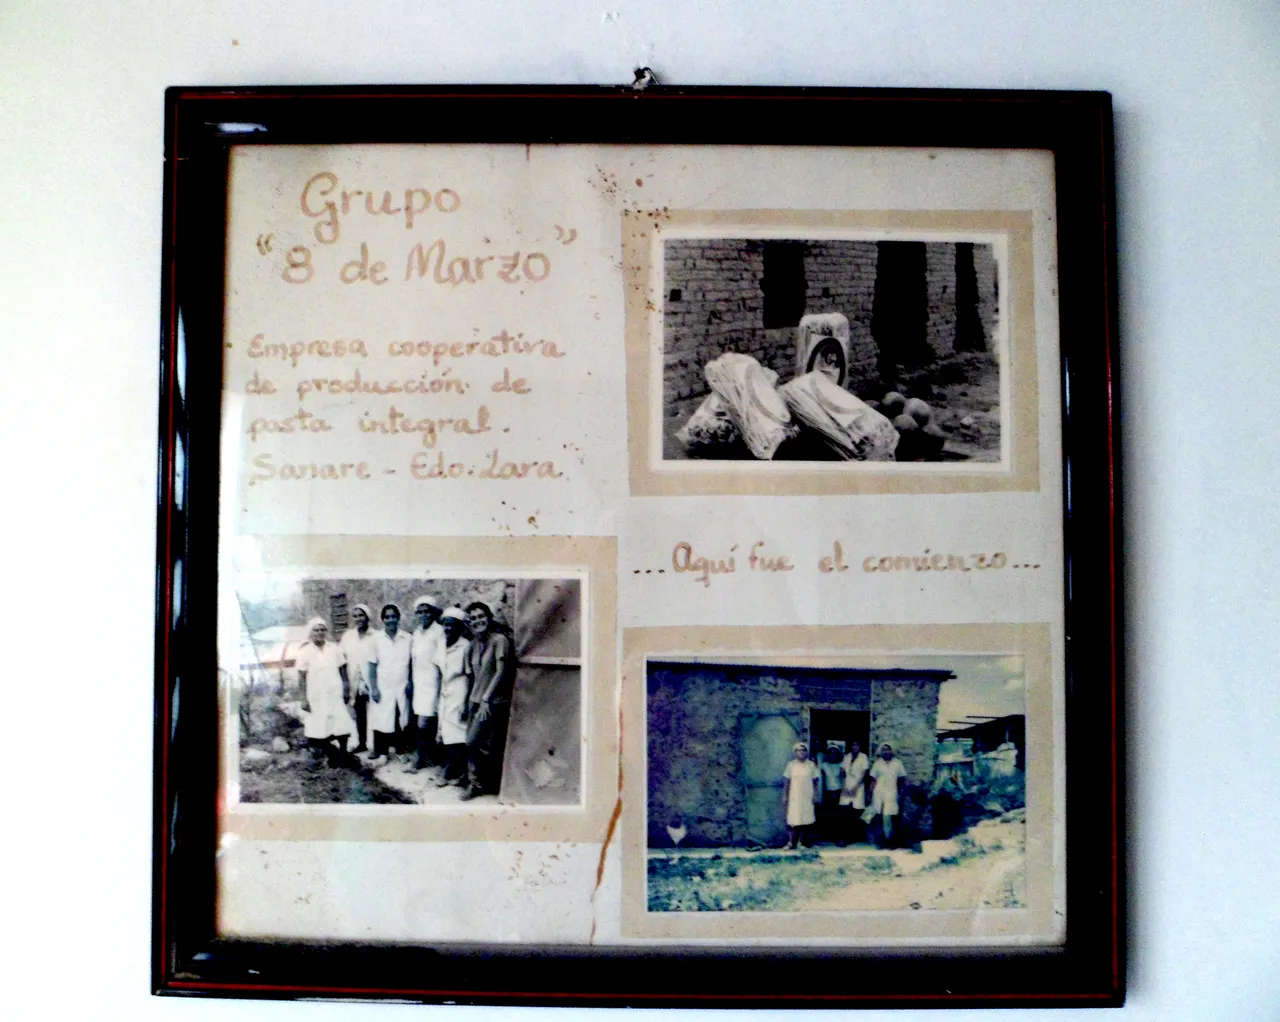 Grupo
"8 de Marzo"
Empresa cooperativa
de producción de
pasta integral.
Sanare - Edo. Lara.
...Aquí fue el comienzo...